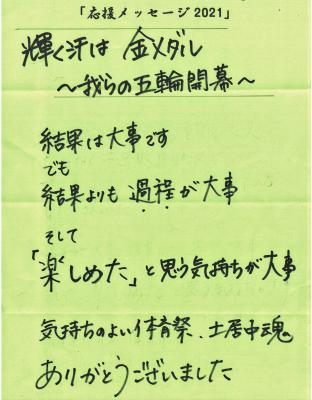 「応援メッセージ2021」
輝く汗は 金メダル
～我らの五輪開幕～
結果は大事です
でも
結果よりも 過程が大事
そして
「楽しめた」と思う気持ちが大事
気持ちのよい体育祭、土居中魂。
ありがとうございました